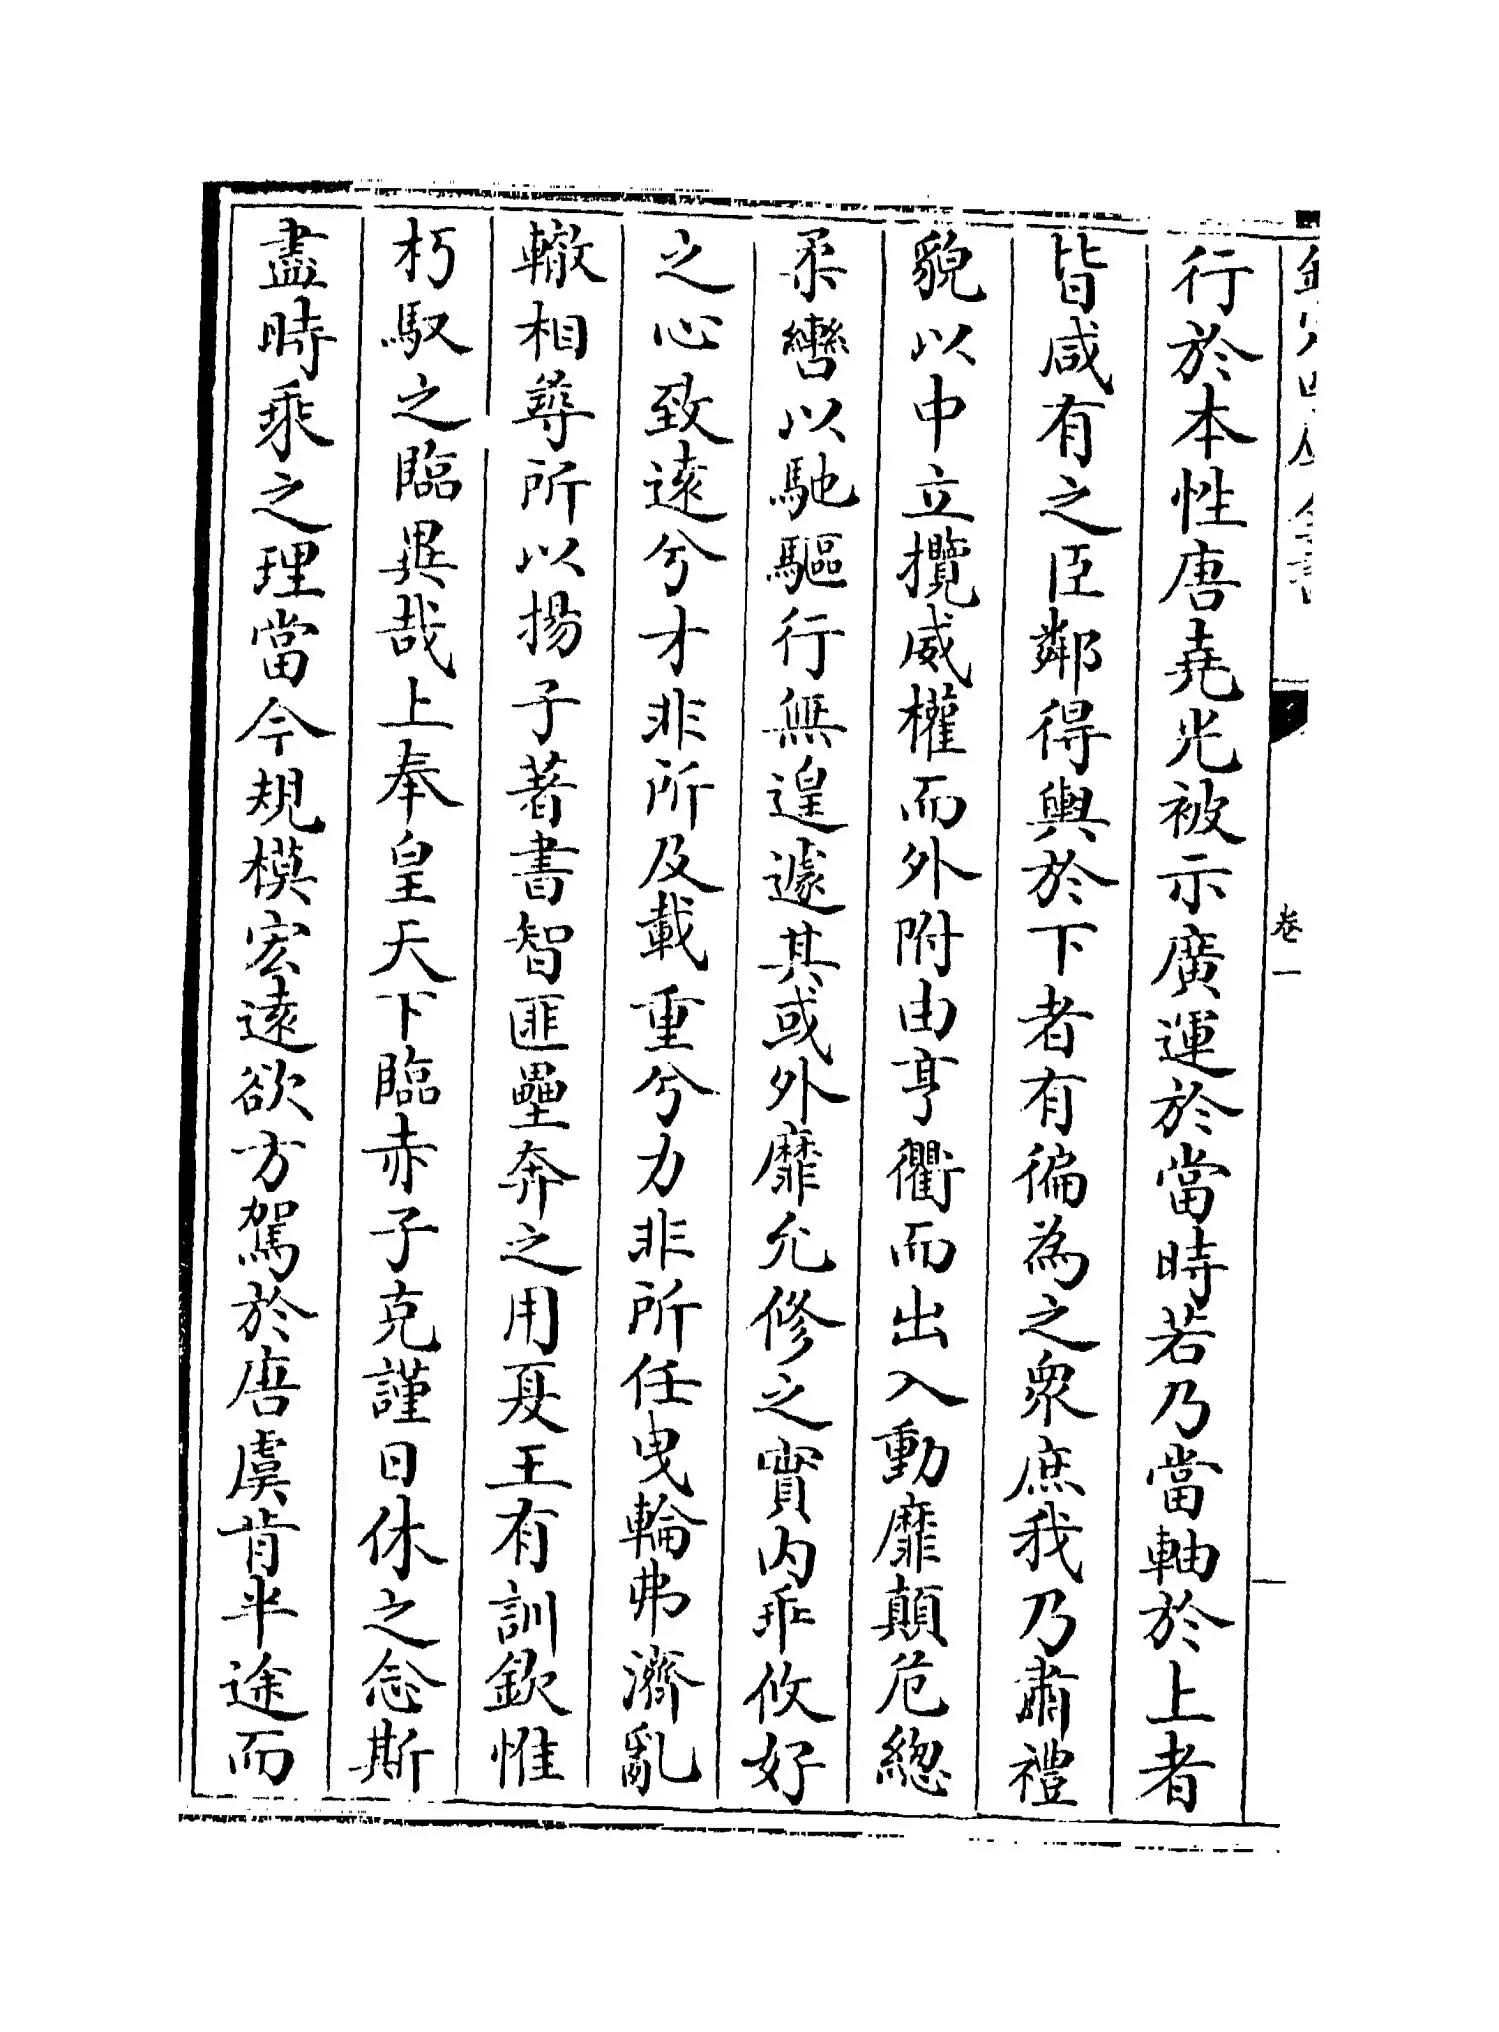 欽定四庫全書
卷一
行於本性唐堯光被示廣運於當時若乃當軸於上者
皆咸有之臣鄰得輿於下者有徧為之衆庶我乃肅禮
貌以中立攬威權而外附由亨衢而出入動靡顛危總
柔轡以馳驅行無遑遽其或外靡允修之實内乖攸好
之心致逺兮才非所及載重兮力非所任曳輪弗濟亂
轍相尋所以揚子著書智匪壘奔之用夏王有訓欽惟
朽馭之臨異哉上奉皇天下臨赤子克謹日休之念斯
盡時乘之理當今規模宏逺欲方駕於唐虞肯半途而